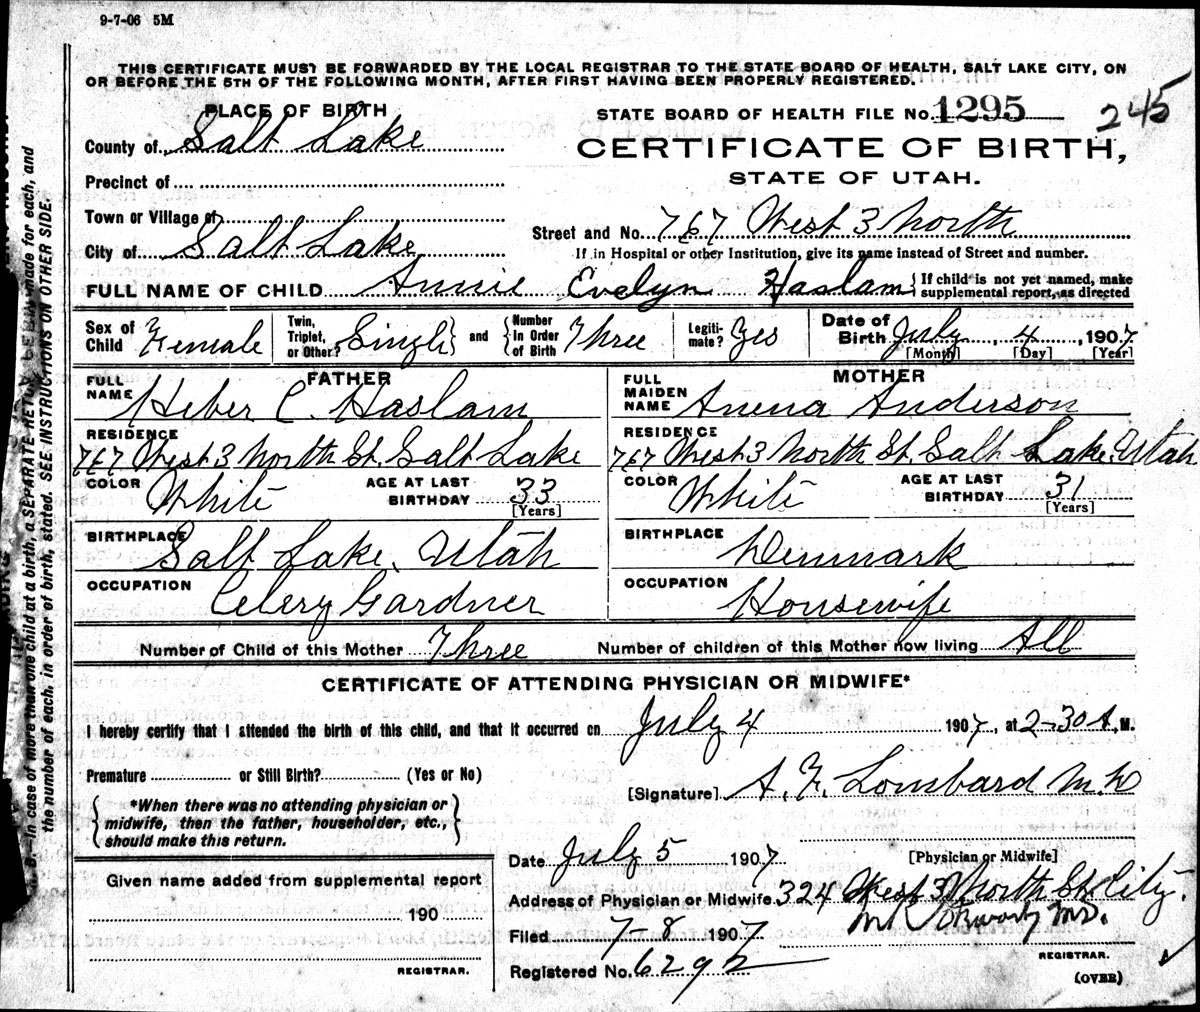 9-7-06 5M
THIS CERTIFICATE MUST BE FORWARDED BY THE LOCAL REGISTRAR TO THE STATE BOARD OF HEALTH, SALT LAKE CITY, ON
OR BEFORE THE 5TH OF THE FOLLOWING MONTH, AFTER FIRST HAVING BEEN PROPERLY REGISTERED.
PLACE OF BIRTH
STATE BOARD OF HEALTH FILE No. 1295 245
County of Salt Lake
CERTIFICATE OF BIRTH,
STATE OF UTAH.
Precinct of
Town or Village of
Street and No. 767 West 3 North
City of Salt Lake
If in Hospital or other Institution, give its name instead of Street and number.
FULL NAME OF CHILD Annie Evelyn Haslam {If child is not yet named, make
supplemental report, as directed
Sex of Child Female
Twin, Triplet, or Other? Single } and { Number in Order of Birth Three
Legiti-mate? Yes
Date of Birth July 4, 1907
[Month] [Day] [Year]
FATHER
FULL NAME Heber C. Haslam
RESIDENCE
767 West 3 North St. Salt Lake
COLOR White AGE AT LAST BIRTHDAY 33
[Years]
BIRTHPLACE Salt Lake, Utah
OCCUPATION Celery Gardner
MOTHER
FULL MAIDEN NAME Anena Anderson
RESIDENCE
767 West 3 North St. Salt Lake, Utah
COLOR White AGE AT LAST BIRTHDAY 31
[Years]
BIRTHPLACE Denmark
OCCUPATION Housewife
Number of Child of this Mother Three Number of children of this Mother now living All
CERTIFICATE OF ATTENDING PHYSICIAN OR MIDWIFE*
I hereby certify that I attended the birth of this child, and that it occurred on July 4 1907, at 2-30 A. M.
Premature or Still Birth? (Yes or No)
[Signature] A. F. Lombard M.D
{ *When there was no attending physician or
midwife, then the father, householder, etc., }
should make this return.
[Physician or Midwife]
Date July 5 1907
Address of Physician or Midwife 324 West 3 North St. City.
Filed 7-8 1907 M.D.
REGISTRAR.
Registered No. 6292
(OVER)
Given name added from supplemental report
190
REGISTRAR.
B.—In case of more than one child at a birth, a SEPARATE RETURN must be made for each, and
the number of each, in order of birth, stated. SEE INSTRUCTIONS ON OTHER SIDE.